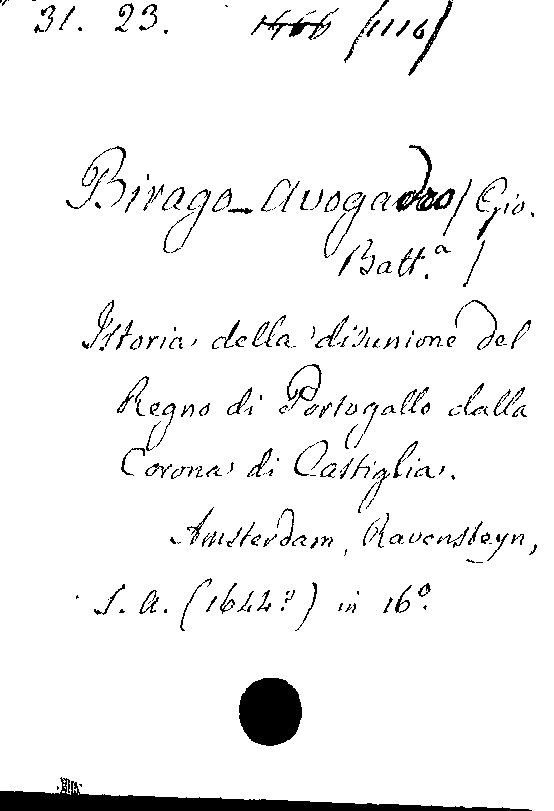 31. 23. 1466 (1116)
Birago-Avogadro / Gio.
Batt.a /
Istoria della disunione del
Regno di Portogallo dalla
Corona di Castiglia.
Amsterdam, Ravensteyn,
S. A. (1644?) in 16º.